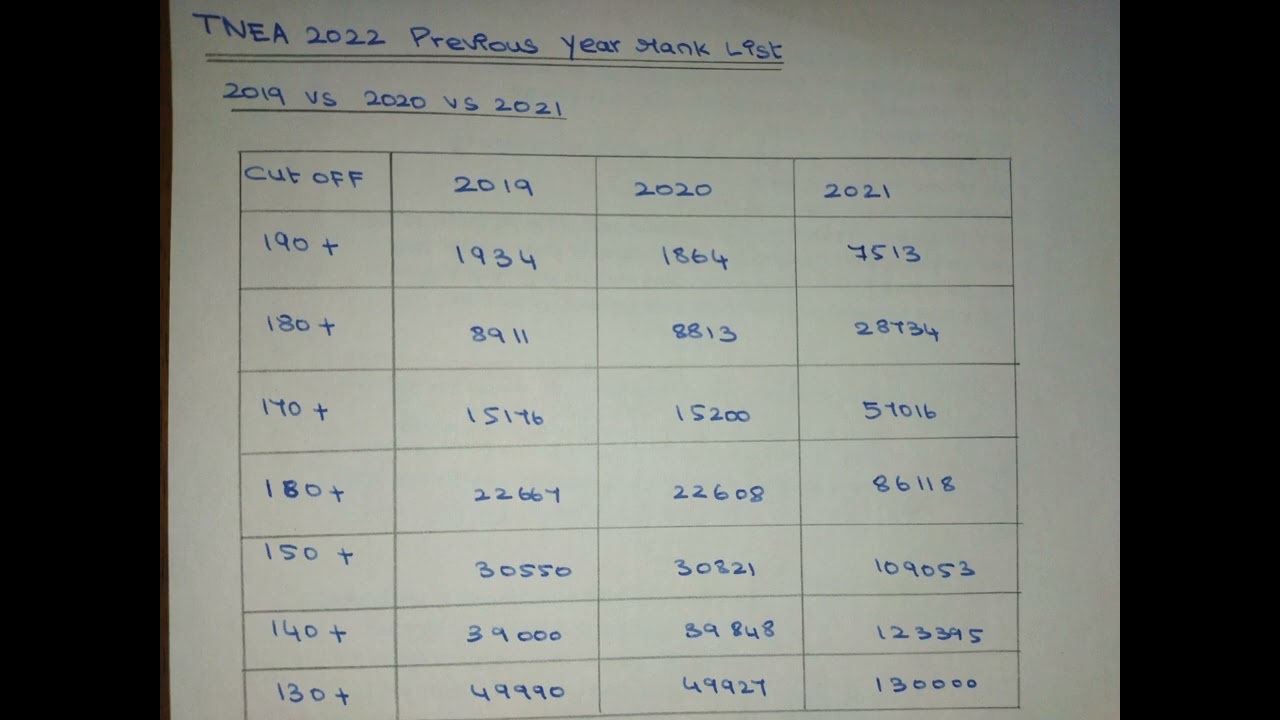 TNEA 2022 Previous Year Rank List
2019 vs 2020 vs 2021
Cut OFF 2019 2020 2021
190 + 1934 1864 7513
180 + 8911 8813 28734
170 + 15176 15200 57016
180 + 22667 22608 86118
150 + 30550 30821 109053
140 + 39000 39848 123395
130 + 49990 49927 130000